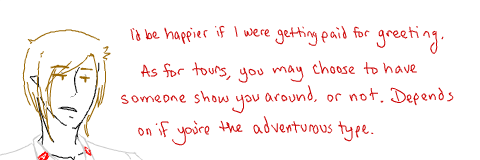 I'd be happier if I were getting paid for greeting.
As for tours, you may choose to have
someone show you around, or not. Depends
on if you're the adventurous type.